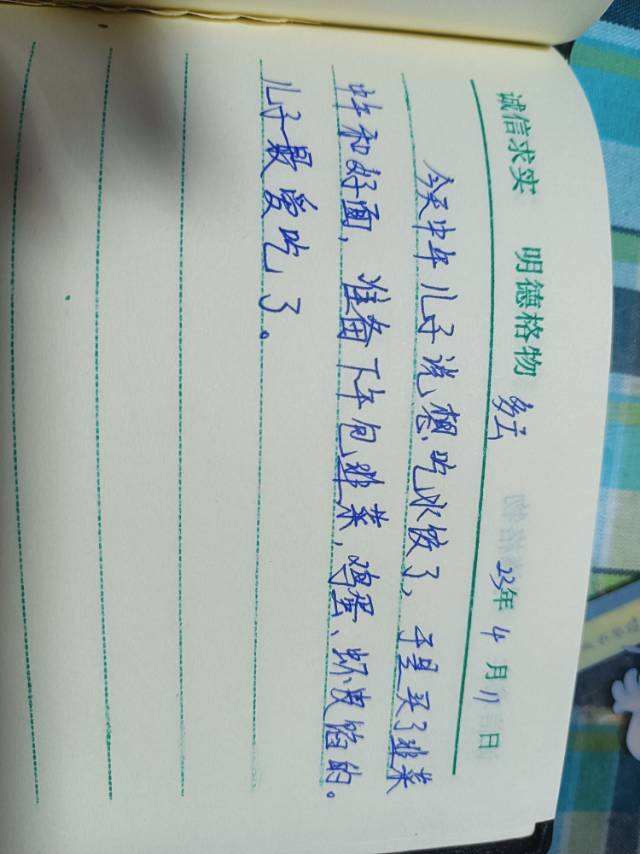 诚信求实 明德格物 多云 23年4月11日
今天中午儿子说想吃水饺了，于是买了韭菜
和好面，准备下午包韭菜，鸡蛋、虾皮馅的。
儿子最爱吃了。